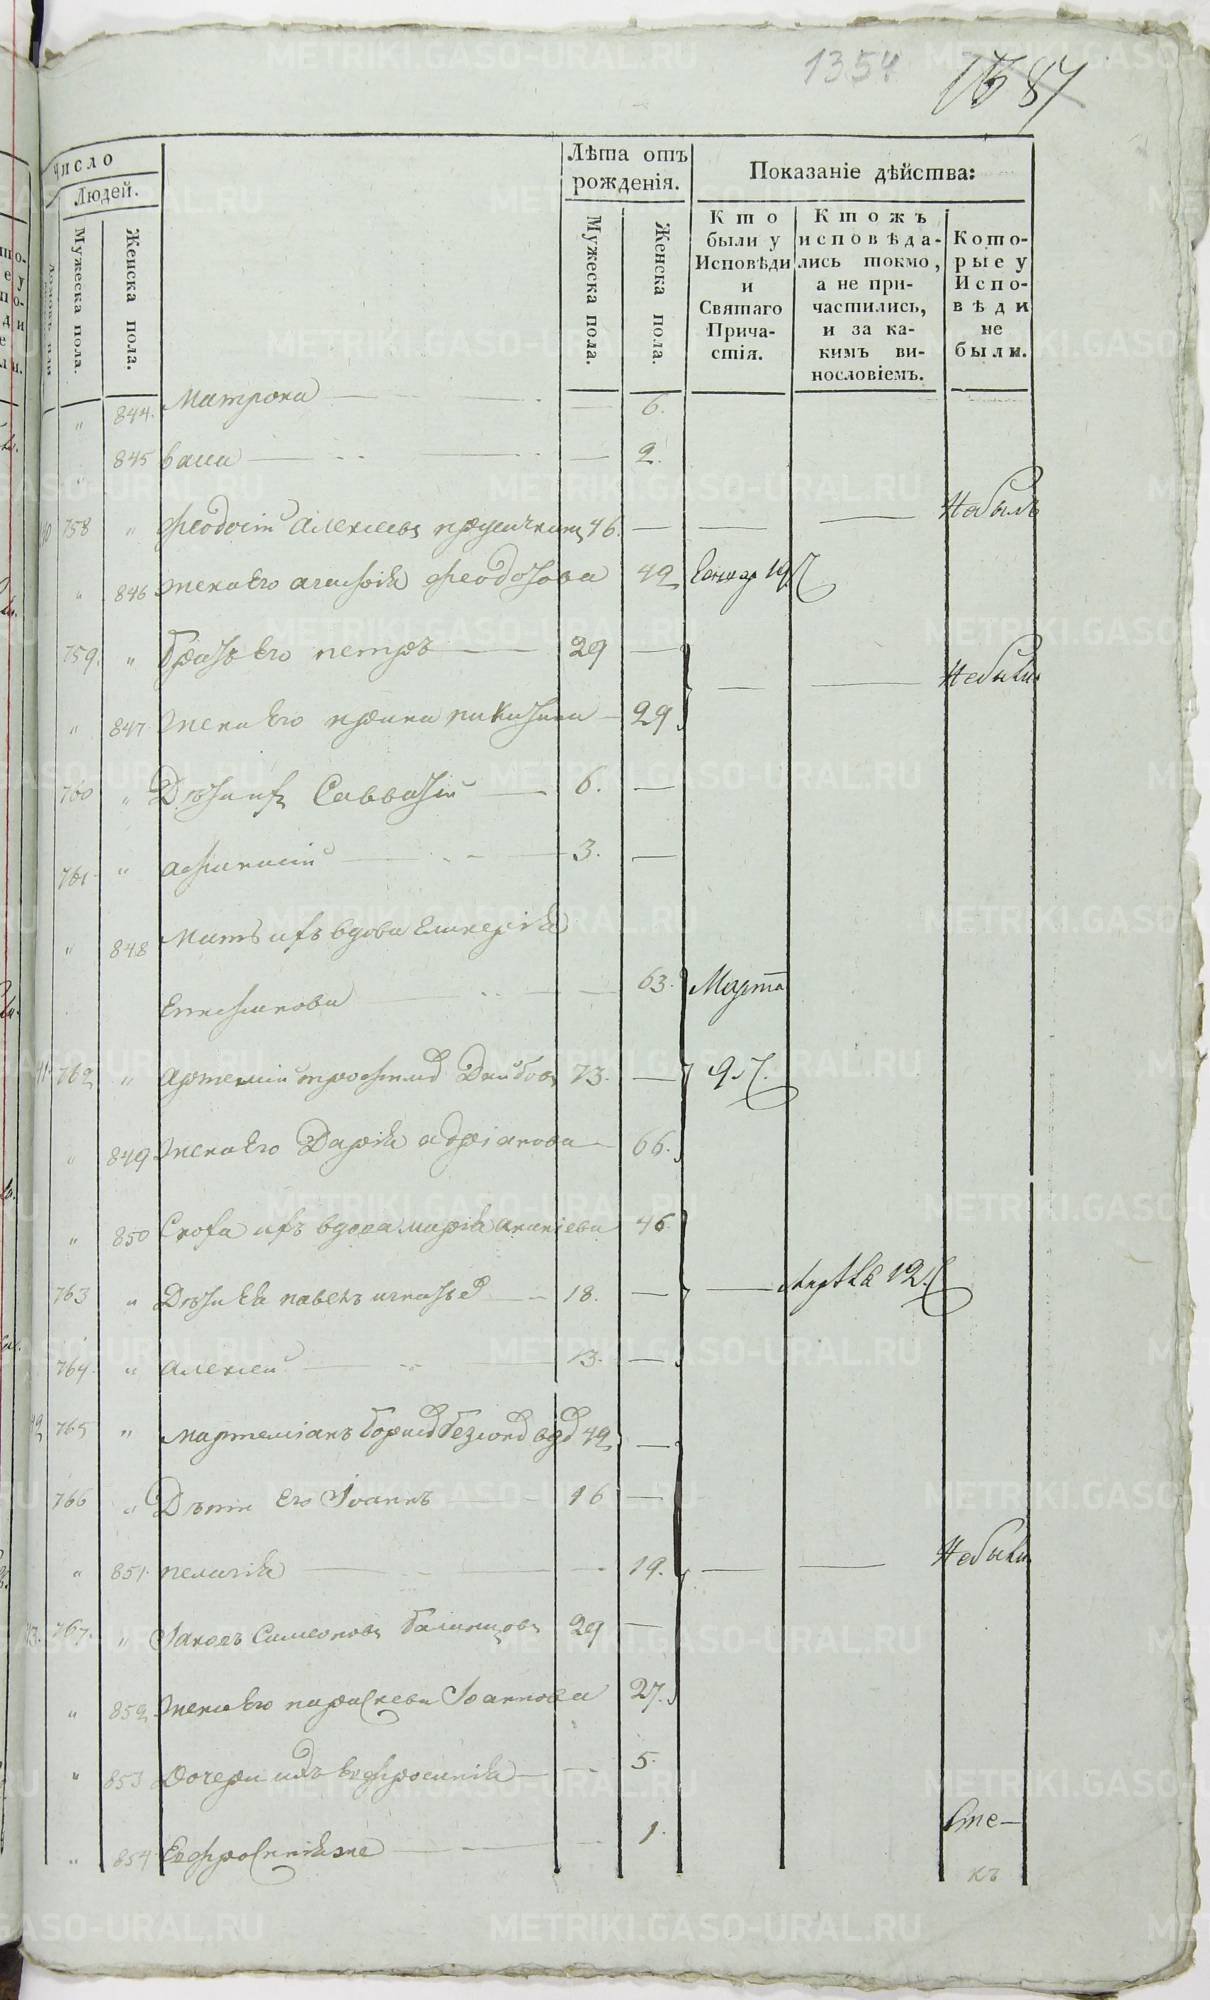 1354
1687
Число
Людей.
Мужеска пола.
Женска пола.
Лѣта отъ рожденія.
Мужеска пола.
Женска пола.
Показаніе дѣйства:
Кто были у Исповѣди и Святаго Причастія.
Ктожъ исповѣдались токмо, а не причастились, и за какимъ винословіемъ.
Которые у Исповѣди не были.
" 844. Матрона — — 6.
" 845 васса — — 2.
758 " феодосій Алексеевъ 46. — — — Небылъ
" 846 жена Его агафія феодотова 42
759. " братъ Его петръ — 29 — — — Небыли
" 847. жена Его — 29
760 " Дѣти ихъ Савватій — 6. —
761. " афанасій — 3. —
" 848 Мать ихъ вдова Гликерія
— 63. Марта
762 " артемій трофимовъ 73. — 9 ч.
" 849 жена Его Дарія адріанова — 66.
" 850 Сноха ихъ вдова марія ананіева 46
763 " Дѣти Ея павелъ игнатьевъ — 18. — — Апрѣля 12. ч
764. " алексей — 13. —
765 " мартеміанъ борисовъ 42 —
766 " Дѣти Его Іоаннъ — 16 —
" 851. пелагія — — 19. — — Небыли
767. " Іаковъ Симеоновъ 29 —
" 852 жена Его параскева Іоаннова 27.
" 853 Дочери ихъ Евфросинія — — 5.
" 854 Евфросинія же — — 1.
къ
METRIKI.GASO-URAL.RU